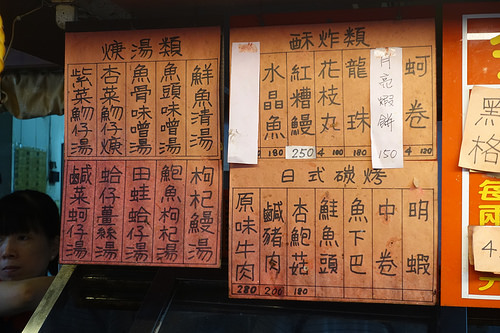 煉湯類
鮮魚清湯
魚頭味噌湯
魚骨味噌湯
杏菜魩仔煉
紫菜魩仔湯
枸杞鰻湯
鮑魚枸杞湯
田蛙蛤仔湯
蛤仔薑絲湯
鹹菜蚵仔湯
酥炸類
蚵卷 120
月亮蝦餅 150
龍珠 180
花枝丸 100
紅糟鰻 250
水晶魚 180
日式碳烤
明蝦
中卷
魚下巴
鮭魚頭
杏鮑菇 180
鹹豬肉 200
原味牛肉 280
黑
格
每
兩